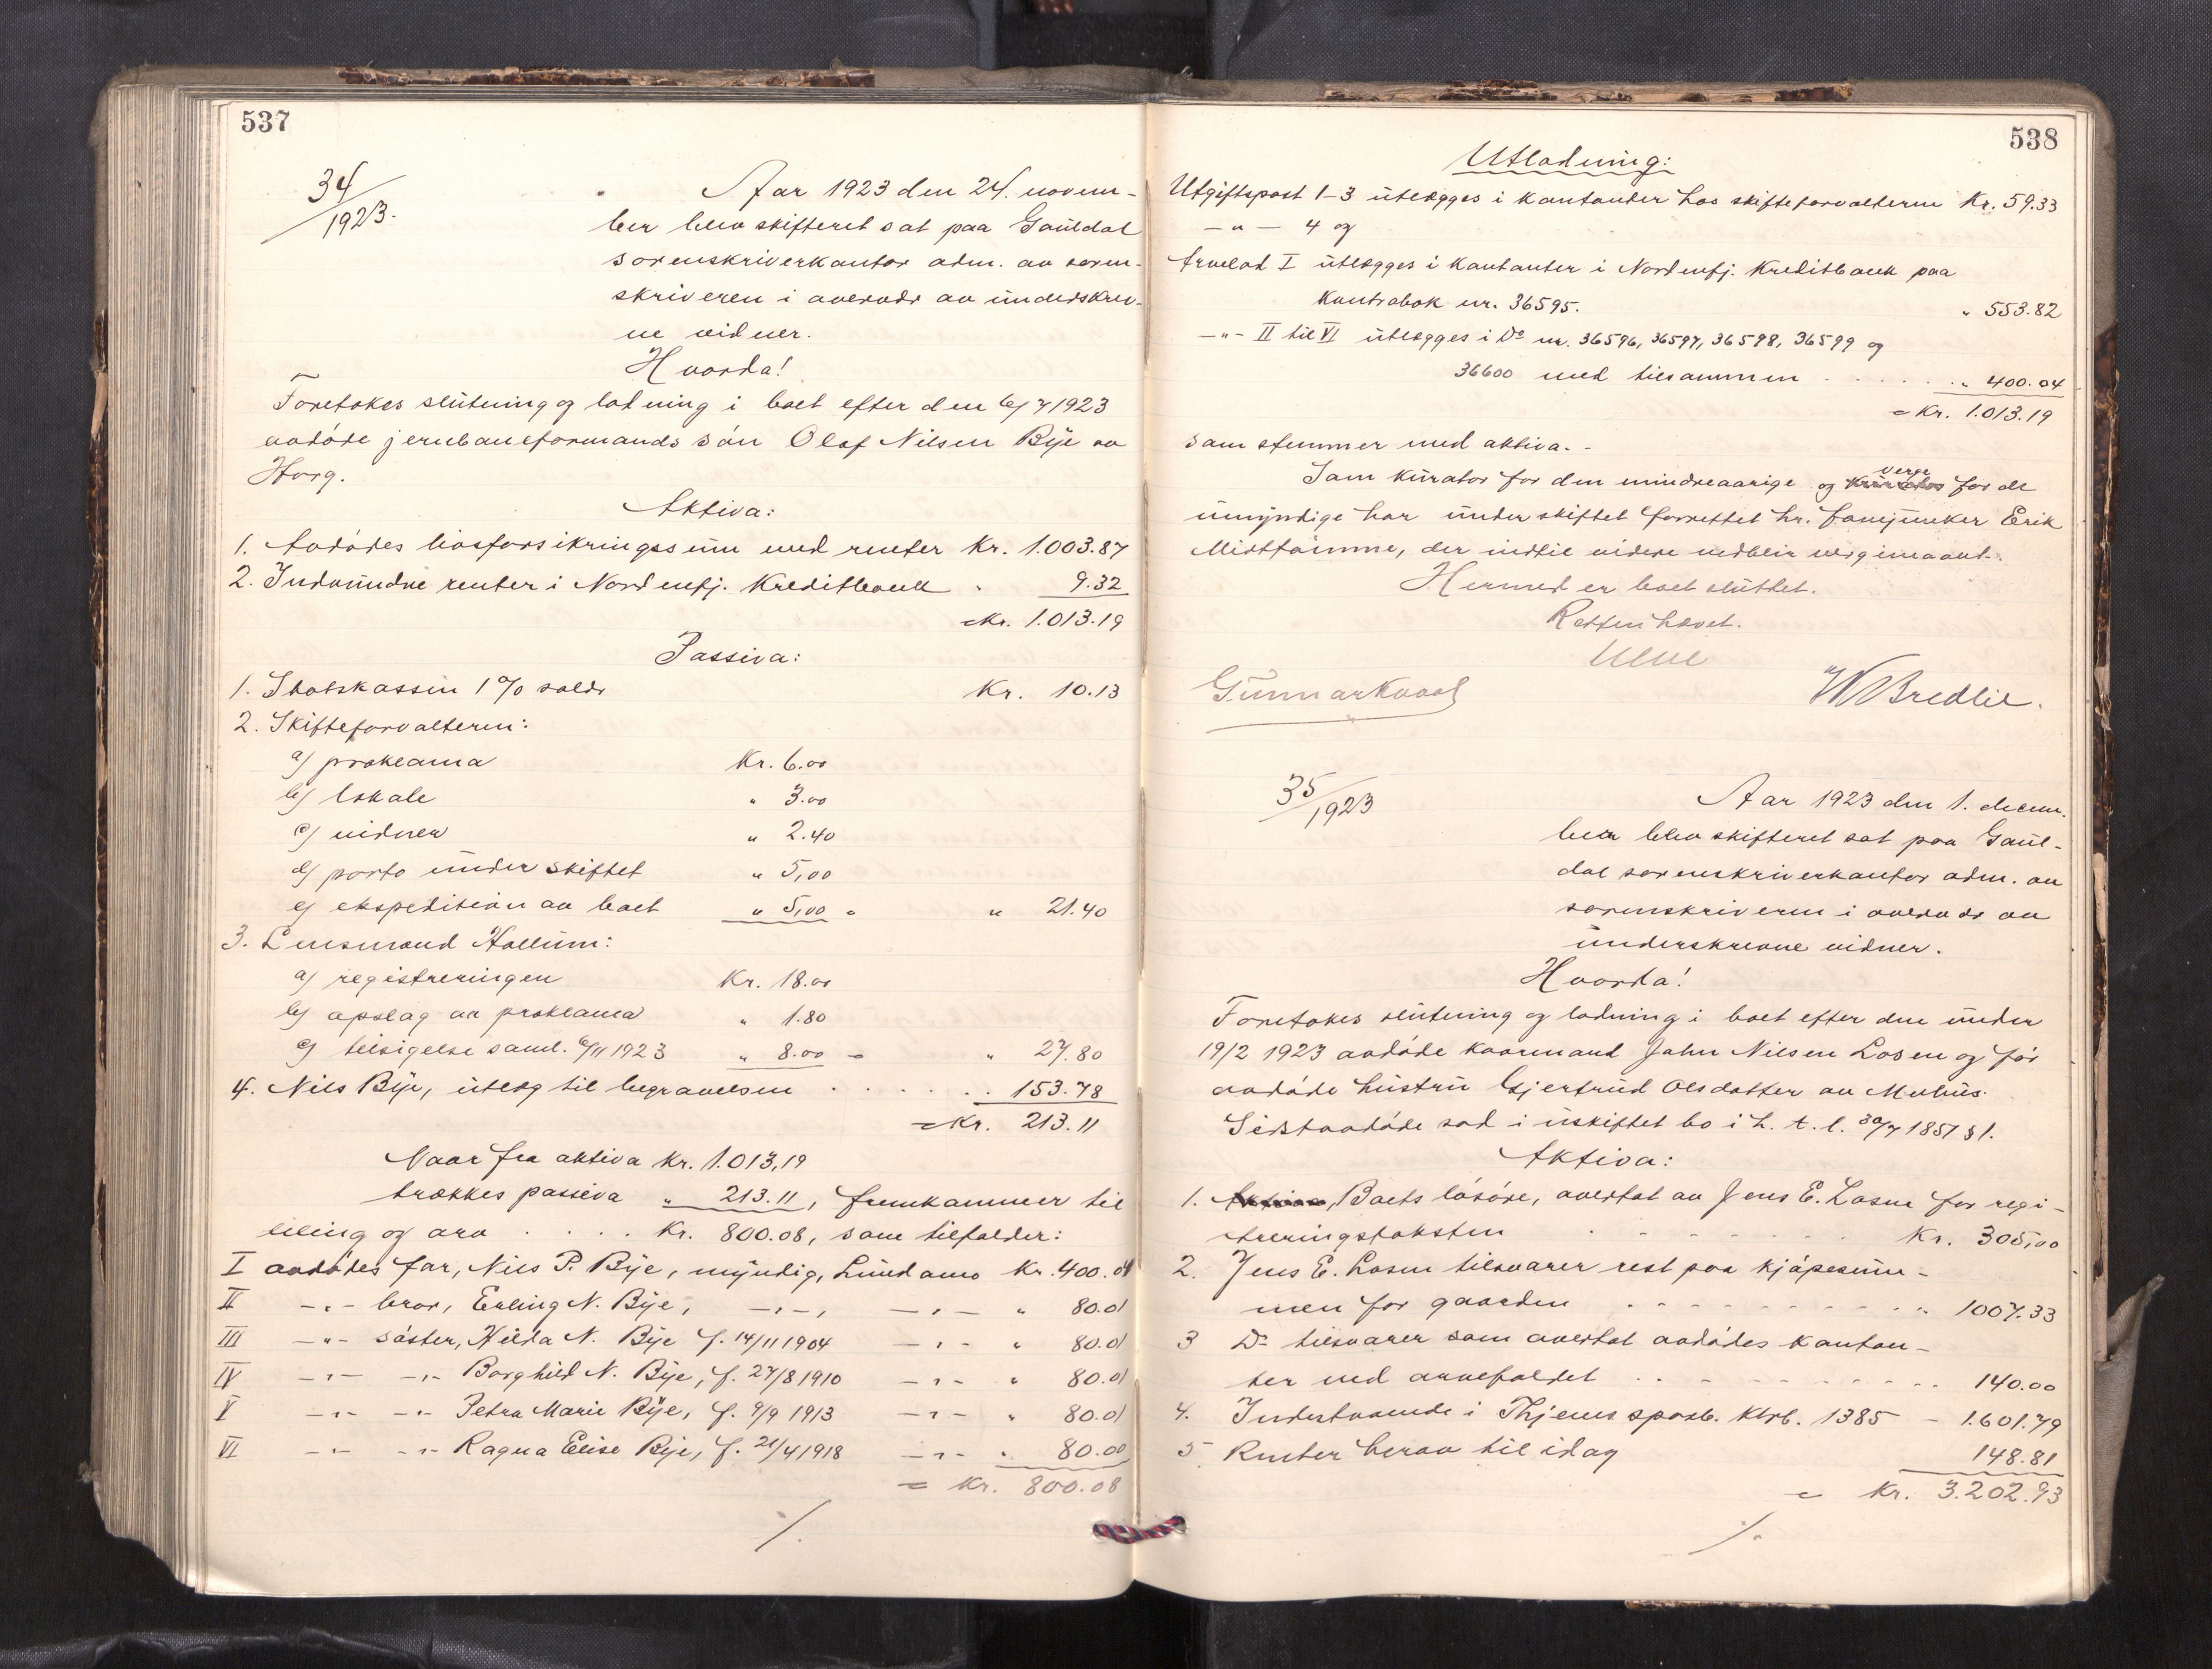 537
34/1923.
Aar 1923 den 24. novem-
ber blev skifteret sat paa Gauldal
sorenskriverkontor adm. av soren-
skriveren i overvær av underskrev-
ne vidner.
Hvorda!
Foretokes slutning og lodning i boet efter den 6/7 1923
avdøde jernbaneformands søn Olaf Nilsen Bye av
Horg.
Aktiva:
1. Avdødes livsforsikringssum med renter Kr. 1.003.87
2. Indvundne renter i Nordenfj. Kreditbank " 9.32
= Kr. 1.013.19
Passiva:
1. Statskassen 1 % Kr. 10.13
2. Skifteforvalteren:
a) proklama Kr. 6.00
b) lokale " 3.00
c) vidner " 2.40
d) porto under skiftet " 5,00
e) ekspedition av boet " 5,00 = " 21.40
3. Lensmand Hollum:
a) registreringen Kr. 18.00
b) opslag av proklama " 1.80
c) tilsigelse saml. 6/11 1923 " 8.00 = " 27.80
4. Nils Bye, utlæg til begravelsen . . . . . " 153.78
= Kr. 213.11
Naar fra aktiva Kr. 1.013,19
trækkes passiva " 213.11, fremkommer til
deling og arv . . . . Kr. 800.08, som tilfalder:
I avdødes far, Nils P. Bye, myndig, Lundamo Kr. 400.04
II -"- bror, Erling N. Bye, -"-, -"- " 80.01
III -"- søster, Hilda N. Bye f. 14/11 1904 -"- " 80.01
IV -"- -"- Borghild N. Bye, f. 27/8 1910 -"- " 80.01
V -"- -"- Petra Marie Bye, f. 9/9 1913 -"- " 80.01
VI -"- -"- Ragna Elise Bye, f. 21/4 1918 -"- " 80.00
= Kr. 800.08
./.
538
Utlodning:
Utgiftspost 1-3 utlægges i kontanter hos skifteforvalteren Kr. 59.33
-"- 4 og
Arvelod I utlægges i kontanter i Nordenfj. Kreditbank paa
kontrabok nr. 36595. " 553.82
-"- II til VI utlægges i Do nr. 36596, 36597, 36598, 36599 og
36600 med tilsammen . . . . . . " 400.04
= Kr. 1.013.19
som stemmer med aktiva.-
Som kurator for den mindreaarige og verge for de
umyndige har under skiftet forrettet hr. fanejunker Erik
, der indtil videre vedblir
Hermed er boet sluttet.
Retten hævet.
Gunnar Kvaal
W Bredlie.
35/1923
Aar 1923 den 1. decem-
ber blev skifteret sat paa Gaul-
dal sorenskriverkontor adm. av
sorenskriveren i overvær av
underskrevne vidner.
Hvorda!
Foretokes slutning og lodning i boet efter den under
19/2 1923 avdøde kaarmand John Nilsen Losen og før
avdøde hustru Gjertrud Olsdatter av Melhus.
Sidstavdøde sad i uskiftet bo i h. t. l. 30/7 1851 § 1.
Aktiva:
1. Boets løsøre, overtat av Jens E. Losen for regi-
streringstaksten . . . . . . Kr. 305,00
2. Jens E. Losen tilsvarer rest paa kjøpesum-
men for gaarden . . . . . . . . . . " 1007.33
3 Do tilsvarer som overtat avdødes kontan-
ter ved arvefaldet . . . . . . . . . . 140.00
4. Indestaaende i Thjems spareb. ktrb. 1385 - 1.601.79
5. Renter herav til idag 148.81
= Kr. 3.202.93
./.